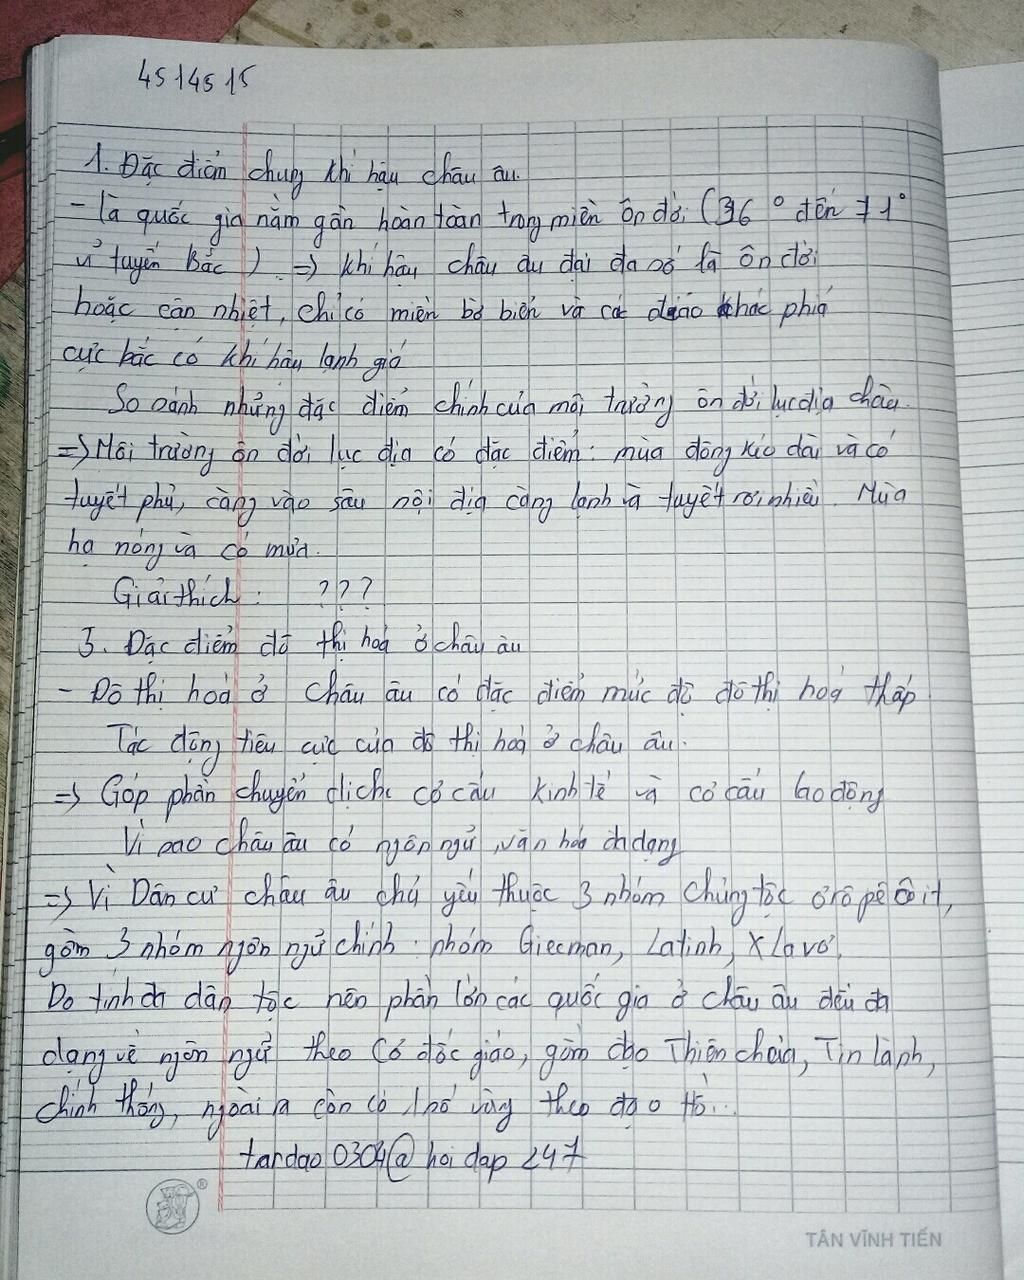 4514515
1. Đặc điểm chung khí hậu châu âu.
- là quốc gia nằm gần hoàn toàn trong miền ôn đới (36° đến 71°
vĩ tuyến Bắc) => khí hậu châu âu đại đa số là ôn đới
hoặc cận nhiệt, chỉ có miền bờ biển và các đảo khác phía
cực bắc có khí hậu lạnh giá
So sánh những đặc điểm chính của môi trường ôn đới lục địa châu.
=> Môi trường ôn đới lục địa có đặc điểm: mùa đông kéo dài và có
tuyết phủ, càng vào sâu nội địa càng lạnh và tuyết rơi nhiều. Mùa
hạ nóng và có mưa.
Giải thích: ???
3. Đặc điểm đô thị hoá ở châu âu
- Đô thị hoá ở châu âu có đặc điểm mức độ đô thị hoá thấp
Tác động tiêu cực của đô thị hoá ở châu âu.
=> Góp phần chuyển dịch cơ cấu kinh tế và cơ cấu lao động
Vì sao châu âu có ngôn ngữ, văn hoá đa dạng
=> Vì Dân cư châu âu chủ yếu thuộc 3 nhóm chủng tộc ơ rô pê ô it,
gồm 3 nhóm ngôn ngữ chính: nhóm Giecman, Latinh, XLavơ.
Do tính đa dân tộc nên phần lớn các quốc gia ở châu âu đều đa
dạng về ngôn ngữ theo Cơ đốc giáo, gồm đạo Thiên chúa, Tin lành,
chính thống, ngoài ra còn có 1 số vùng theo đạo Hồ...
tardao0304@hoidap247
TÂN VĨNH TIẾN